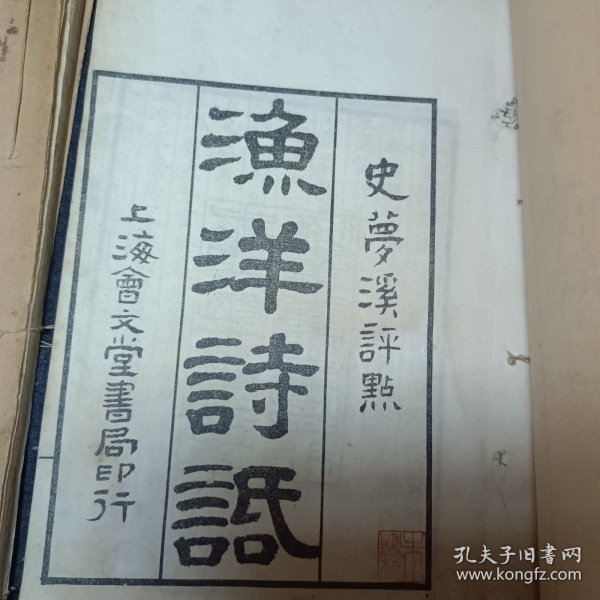 史夢溪評點
漁洋詩話
上海會文堂書局印行
孔夫子旧书网
www.kongfz.com